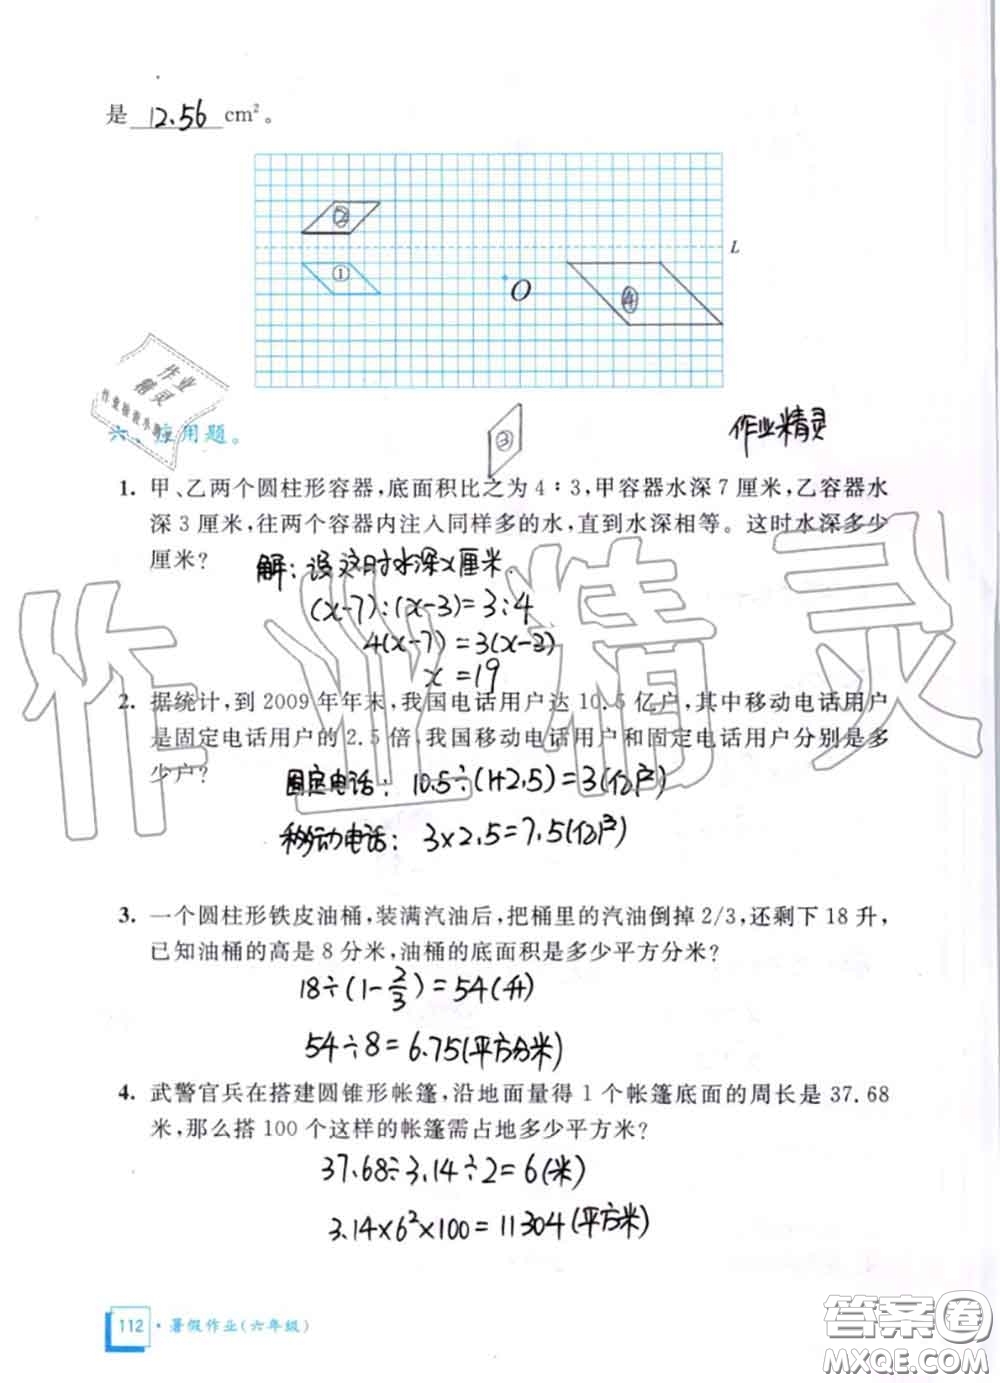 是 12.56 cm²。
②
①
L
O
④
作业
精灵
六、应用题。
③
作业精灵
1. 甲、乙两个圆柱形容器,底面积比之为 4∶3,甲容器水深 7 厘米,乙容器水
深 3 厘米,往两个容器内注入同样多的水,直到水深相等。这时水深多少
厘米?
解:设这时水深x厘米.
(x-7):(x-3)=3:4
4(x-7)=3(x-3)
x=19
作业精灵
2. 据统计,到 2009 年年末,我国电话用户达 10.5 亿户,其中移动电话用户
是固定电话用户的 2.5 倍,我国移动电话用户和固定电话用户分别是多
少户?
固定电话: 10.5÷(1+2.5)=3(亿户)
移动电话: 3×2.5=7.5(亿户)
3. 一个圆柱形铁皮油桶,装满汽油后,把桶里的汽油倒掉 2/3,还剩下 18 升,
已知油桶的高是 8 分米,油桶的底面积是多少平方分米?
18÷(1-2/3)=54(升)
54÷8=6.75(平方分米)
4. 武警官兵在搭建圆锥形帐篷,沿地面量得 1 个帐篷底面的周长是 37.68
米,那么搭 100 个这样的帐篷需占地多少平方米?
37.68÷3.14÷2=6(米)
3.14×6²×100=11304(平方米)
112 · 暑假作业(六年级)
答案圈
MXQE.COM